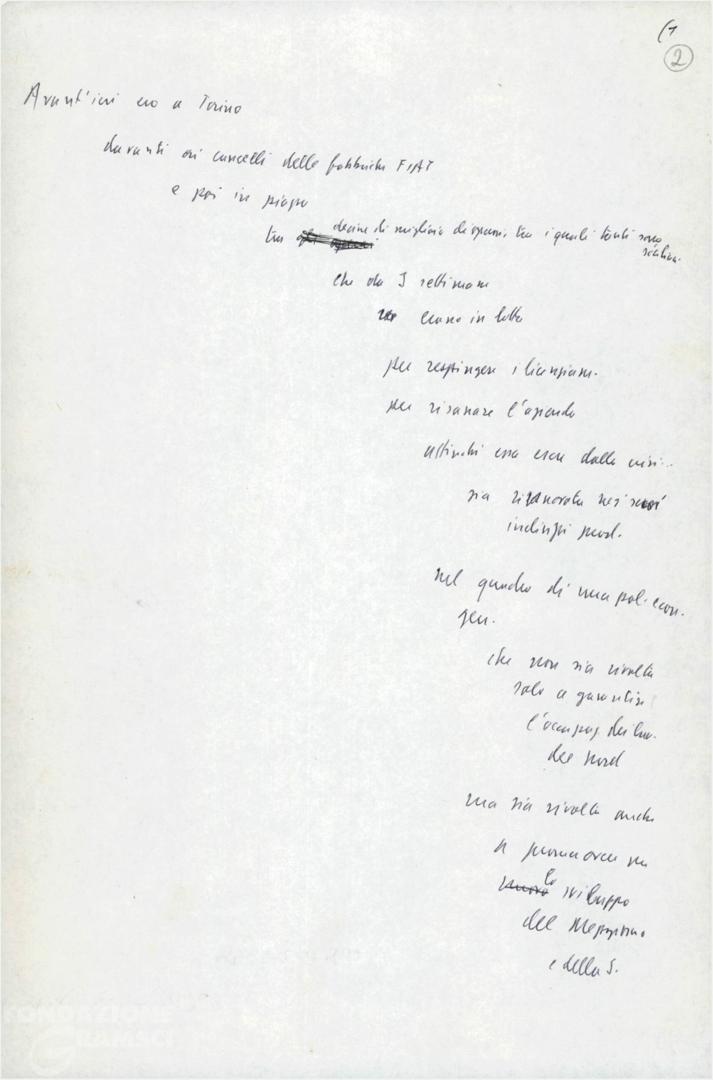 (1
2
Avant'ieri ero a Torino
davanti ai cancelli delle fabbriche FIAT
e poi in piazza
tra decine di migliaia di operai, tra i quali tanti sono
siciliani
che da 3 settimane
erano in lotta
per respingere i licenziam.
per risanare l'azienda
affinché essa esca dalla crisi..
sia rinnovata nei suoi
indirizzi prod.
nel quadro di una pol. econ.
gen.
che non sia rivolta
solo a garantire
l'occupaz. dei lav.
del Nord
ma sia rivolta anche
a promuovere
lo sviluppo
del Mezzogiorno
e della S.
FONDAZIONE
GRAMSCI